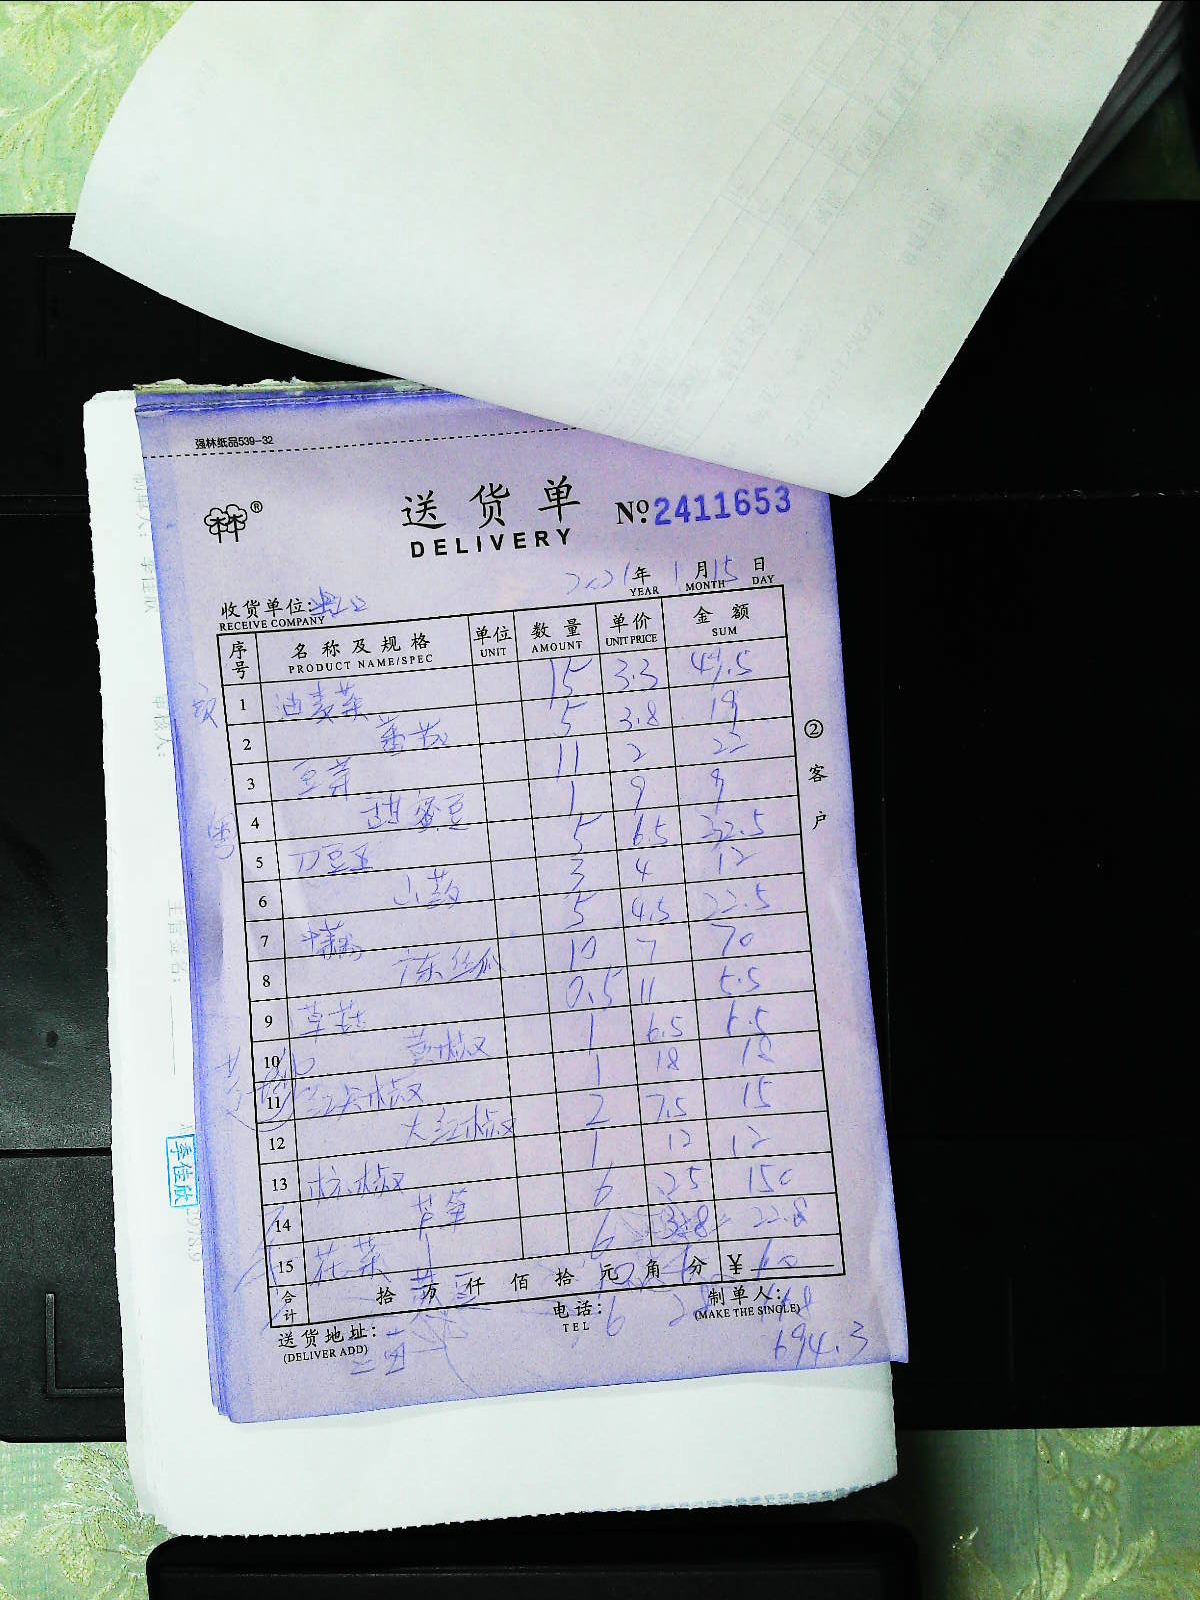 强林纸品539-32
林®
送货单
DELIVERY
№ 2411653
2021年 1月15日
YEAR MONTH DAY
收货单位:
RECEIVE COMPANY
序号 名称及规格 单位 数量 单价 金额
PRODUCT NAME/SPEC UNIT AMOUNT UNIT PRICE SUM
1 油麦菜 15 3.3 49.5
2 番茄 5 3.8 19
3 豆芽 11 2 22
4 甜蜜豆 1 9 9
5 刀豆 5 6.5 32.5
6 山药 3 4 12
7 5 4.5 22.5
8 广东丝瓜 10 7 70
9 草菇 0.5 11 5.5
10 黄椒 1 6.5 6.5
11 红尖椒 1 18 18
12 大红椒 2 7.5 15
13 杭椒 1 12 12
14 芦笋 6 25 150
15 花菜 6 3.8 22.8
合计 拾 万 仟 佰 拾 元 角 分 ¥
送货地址:
(DELIVER ADD)
电话:
TEL
6
制单人:
(MAKE THE SINGLE)
694.3
②客户
李佳欣